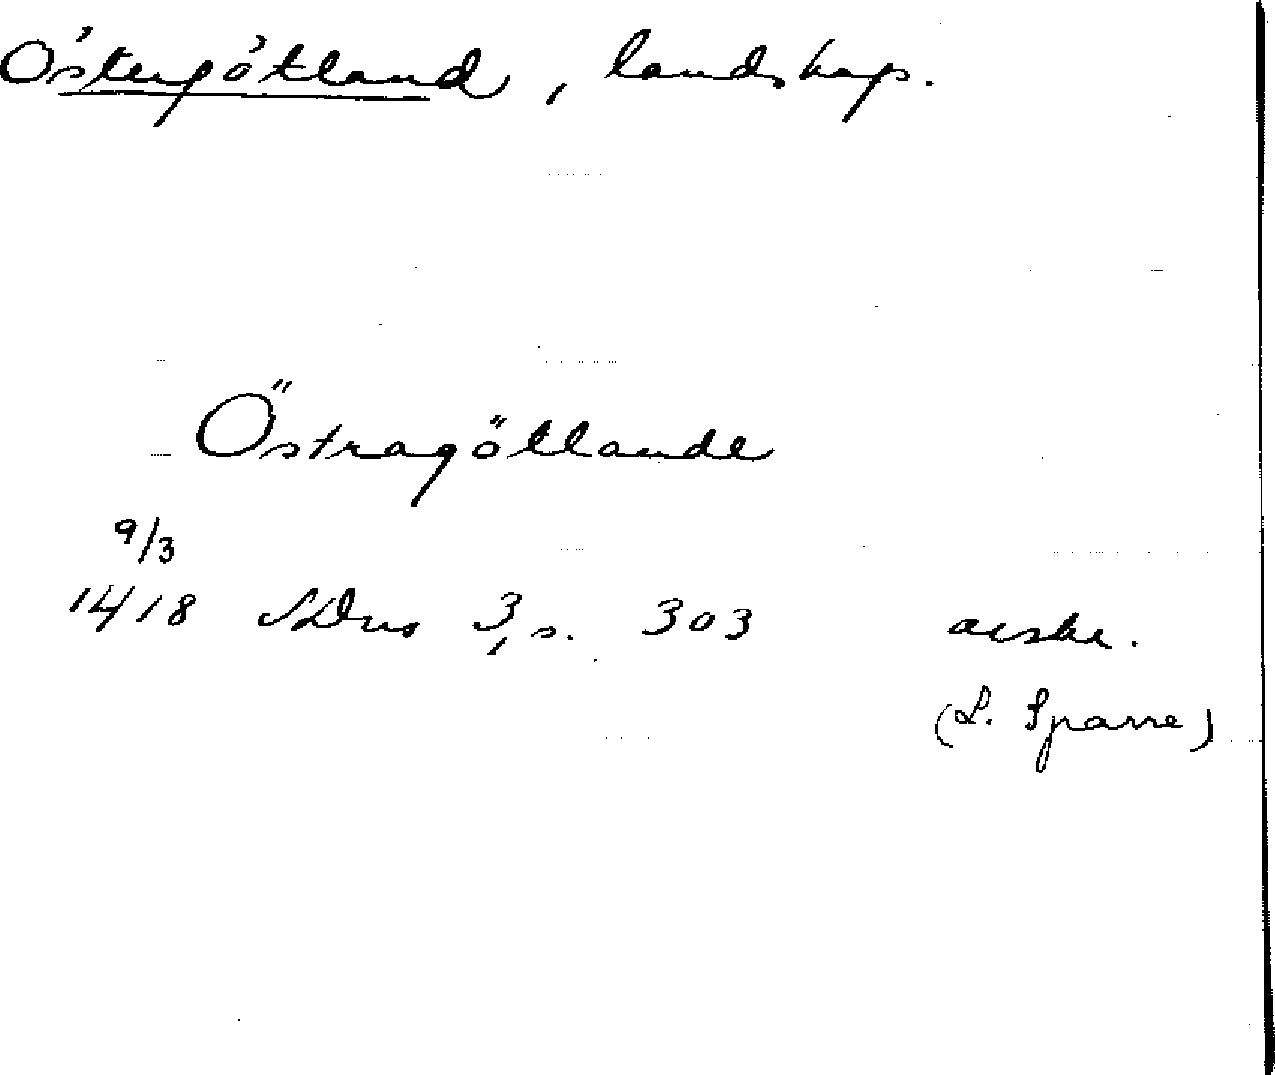 Östergötland, landskap.
Östragötlande
9/3
1418 SDns 3, s. 303 avskr.
(L. Sparre)